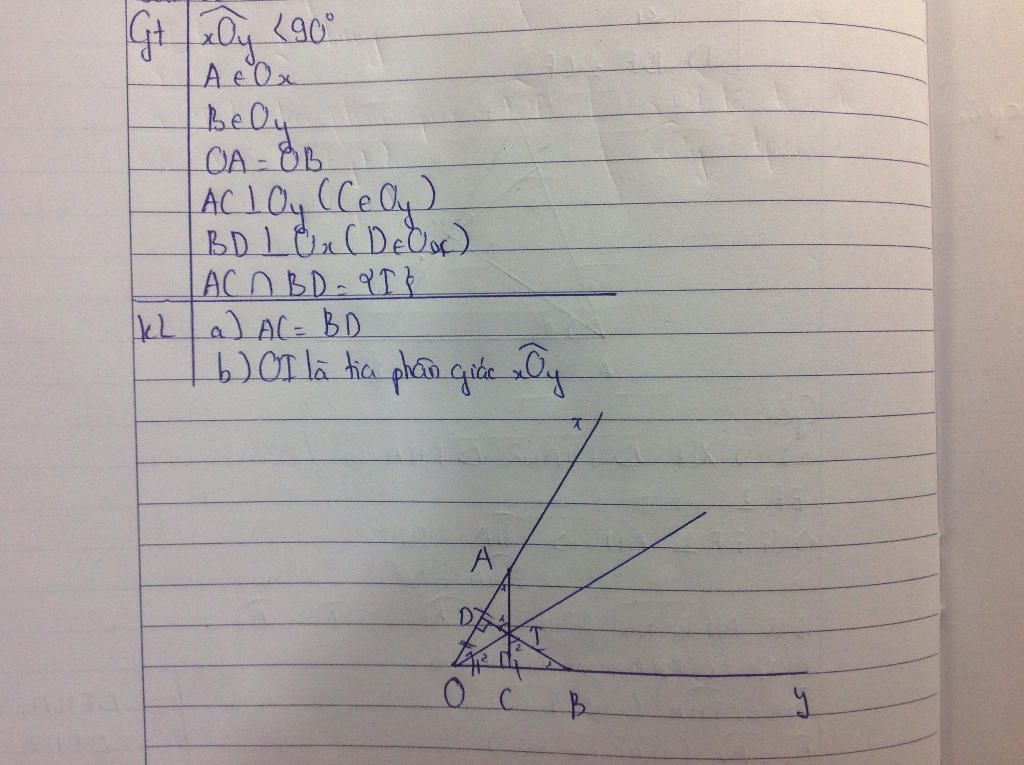 Gt xOy < 90°
A ∈ Ox
B ∈ Oy
OA = OB
AC ⊥ Oy (C ∈ Oy)
BD ⊥ Ox (D ∈ Ox)
AC ∩ BD = {I}
KL a) AC = BD
b) OI là tia phân giác xOy
x
A
D I
O C B y